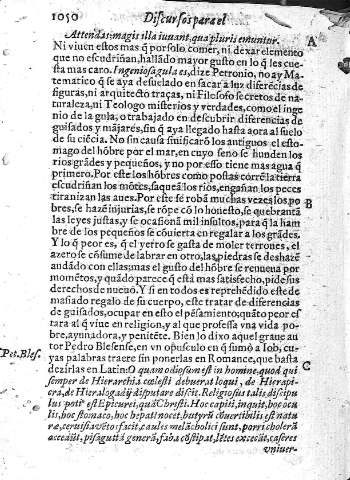 1050 Discursos para el
Attendas: magis illa iuuant, quæ pluris emuntur. A
Ni viuen estos mas q̃ por solo comer, ni dexar elemento
que no escudriñan, hallãdo mayor gusto en lo q̃ les cue-
sta mas caro. Ingeniosa gula es, dize Petronio, no ay Ma-
tematico q̃ se aya desuelado en sacar a luz diferẽcias de
figuras, ni arquitecto traças, ni Filosofo secretos de na-
turaleza, ni Teologo misterios y verdades, como el inge-
nio de la gula, o trabajado en descubrir diferencias de
guisados y mãjares, sin q̃ aya llegado hasta aora al suelo
de su ciẽcia. No sin causa sinificarõ los antiguos el esto-
mago del hõbre por el mar, en cuyo seno se hunden los
rios grãdes y pequeños, y no por esso tiene mas agua q̃
primero. Por este los hõbres como postas corrẽ la tierra
escudriñan los mõtes, saqueã los rios, engañan los peces
tiranizan las aues. Por este se robã muchas vezes los po- B
bres, se hazẽ injurias, se rõpe cõ lo honesto, se quebrantã
las leyes justas, y se ocasionã mil insultos, para q̃ la ham
bre de los pequeños se cõuierta en regalar a los grãdes.
Y lo q̃ peor es, q̃ el yerro se gasta de moler terrones, el
azero se cõsume de labrar en otro, las piedras se deshazẽ
andãdo con ellas: mas el gusto del hõbre se renueua por
momẽtos, y quãdo parece q̃ está mas satisfecho, pide sus
derechos de nueuo. Y si en todos es reprehẽdido este de
masiado regalo de su cuerpo, este tratar de diferencias
de guisados, ocupar en esto el pẽsamiento; quãto peor es
tara al q̃ viue en religion, y al que professa vna vida po-
bre, ayunadora, y penitẽte. Bien lo dixo aquel graue au
Pet. Bles. tor Pedro Blesense, en vn opusculo en q̃ sumó a Iob, cu-
yas palabras traere sin ponerlas en Romance, que basta
dezirlas en Latin: O quam odiosum est in homine, quod qui C
semper de Hierarchia cœlesti debuerat loqui, de Hierapi-
cra, de Hieralogadij disputare discit. Religiosus talis discipu
lus potiº est Epicuri, quã Christi. Hoc capiti, inquit, hoc ocu
lis, hoc stomaco, hoc hepati nocet, butyrũ cõuertibilis est natu
ræ, ceruisia vẽto: facit, caules melãcholici sunt, porri cholerã
accẽdũt, pisa guttã generã, faba cõstipat, lẽtes excecãt, caseus
vniuer-